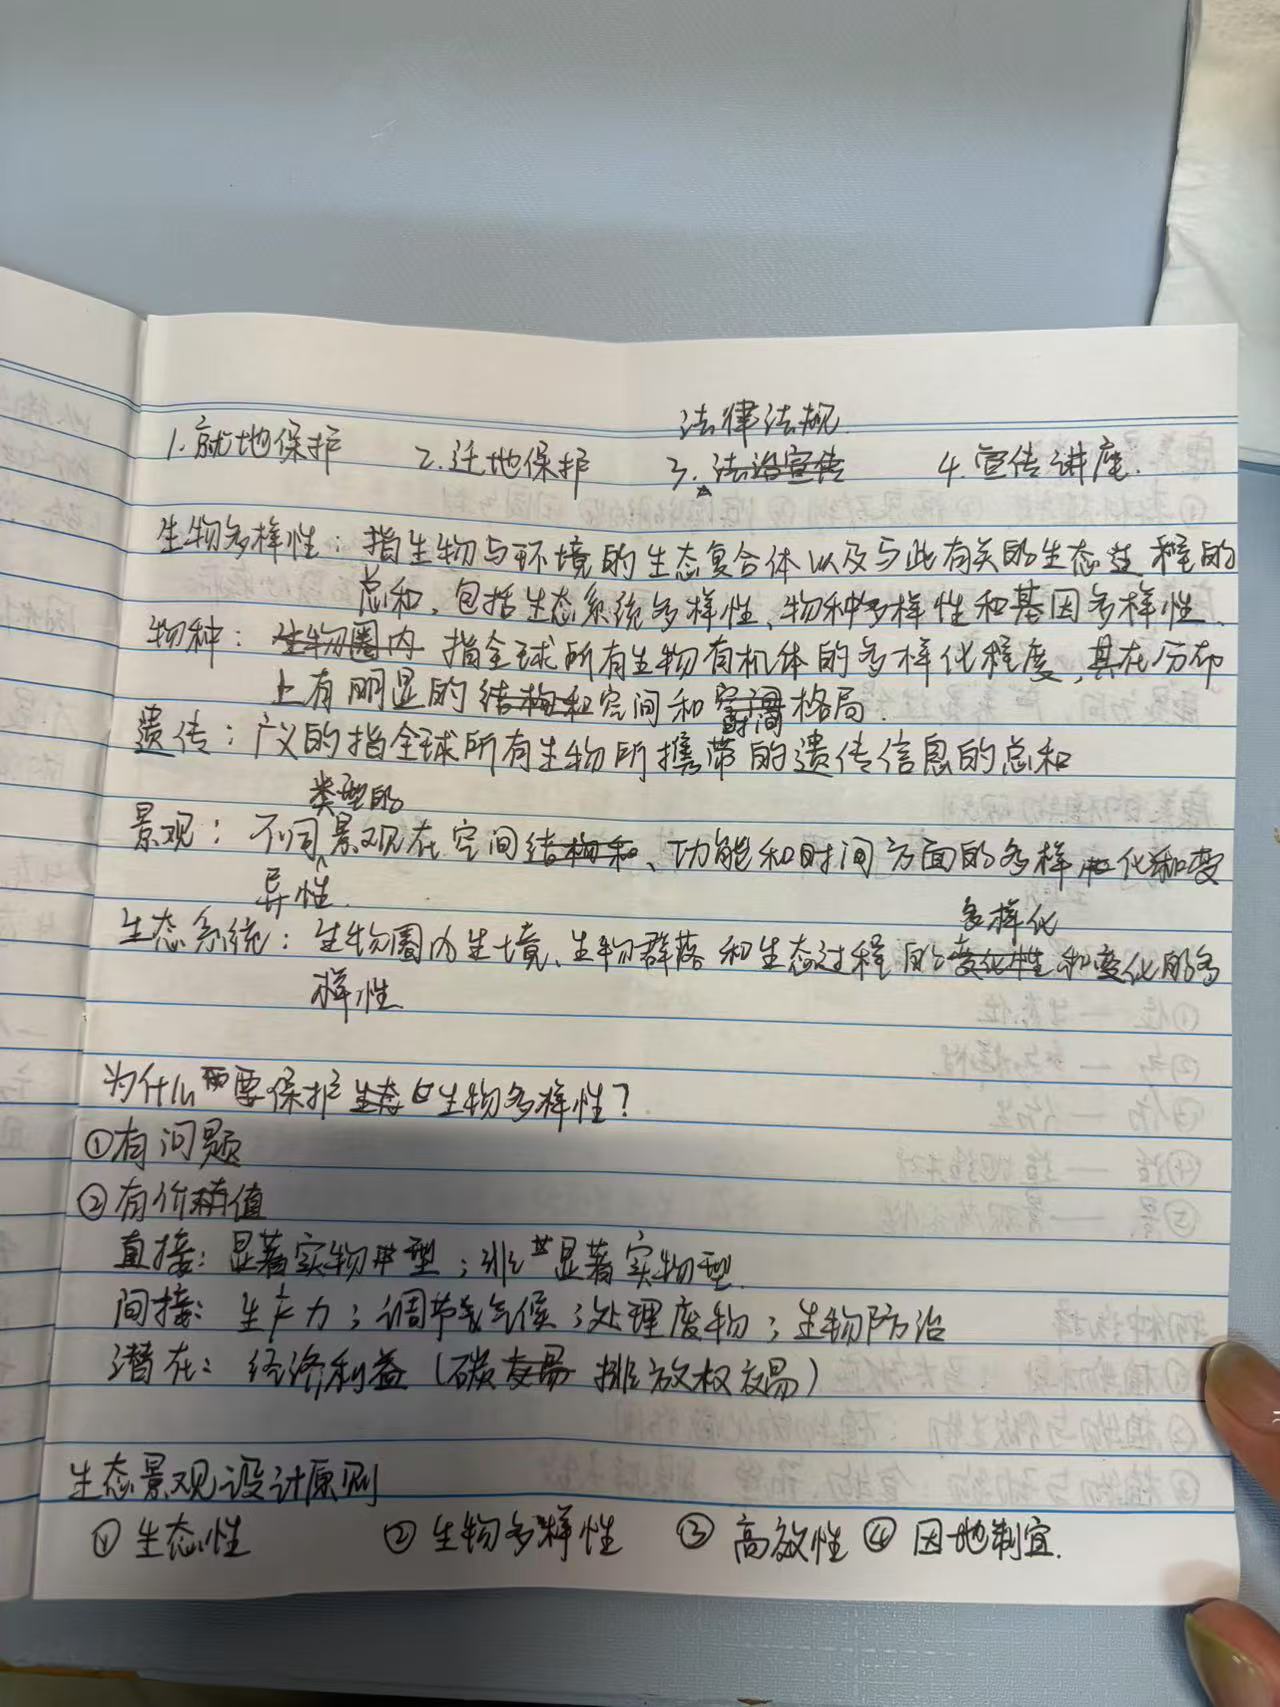 法律法规
1. 就地保护 2. 迁地保护 3. 法治宣传 4. 宣传讲座.
生物多样性：指生物与环境的生态复合体以及与此有关的生态过程的
总和，包括生态系统多样性、物种多样性和基因多样性.
物种：生物圈内 指全球所有生物有机体的多样化程度，其在分布
上有明显的结构和空间和空间时间格局.
遗传：广义的指全球所有生物所携带的遗传信息的总和
类型的
景观：不同景观在空间结构和、功能和时间方面的多样化和变
异性.
多样化
生态系统：生物圈内生境、生物群落和生态过程的变化性和变化的多
样性
为什么要保护生态生物多样性？
①有问题
②有价值
直接：显著实物型；非显著实物型.
间接：生产力；调节气候；处理废物；生物防治
潜在：经济利益（碳交易 排放权交易）
生态景观设计原则
① 生态性 ② 生物多样性 ③ 高效性 ④ 因地制宜.